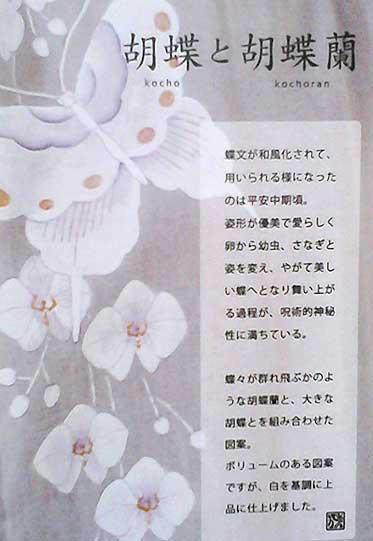 胡蝶と胡蝶蘭
kocho kochoran
蝶文が和風化されて、
用いられる様になった
のは平安中期頃。
姿形が優美で愛らしく
卵から幼虫、さなぎと
姿を変え、やがて美し
い蝶へとなり舞い上が
る過程が、呪術的神秘
性に満ちている。
蝶々が群れ飛ぶかのよ
うな胡蝶蘭と、大きな
胡蝶とを組み合わせた
図案。
ボリュームのある図案
ですが、白を基調に上
品に仕上げました。